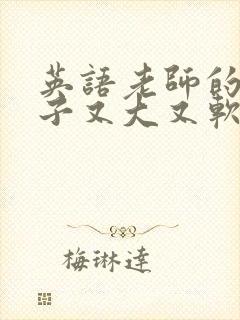 英語老師的
子又大又軟
梅琳達